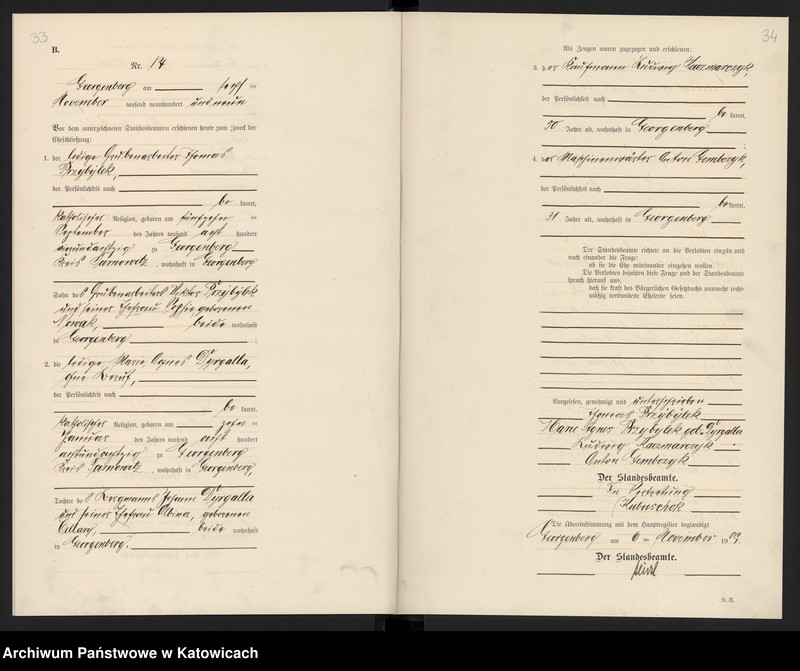 33
B.
Nr. 14
Georgenberg am
November tausend neunhundert und neun
Vor dem unterzeichneten Standesbeamten erschienen heute zum Zweck der
Eheschließung:
1. der ledige Grubenarbeiter Thomas
Przybylek,
der Persönlichkeit nach
be kannt,
katholischer Religion, geboren am fünfzehn ten
September des Jahres tausend acht hundert
zu Georgenberg
Kreis Tarnowitz, wohnhaft in Georgenberg
Sohn des Grubenarbeiters Viktor Przybylek
und seiner Ehefrau Sophie, geborenen
Nowak, beide wohnhaft
in Georgenberg ;
2. die ledige Marie Agnes Dyrgalla,
ohne Beruf,
der Persönlichkeit nach
be kannt,
katholischer Religion, geboren am zehn ten
Januar des Jahres tausend acht hundert
achtundachtzig zu Georgenberg
Kreis Tarnowitz, wohnhaft in Georgenberg,
Tochter des Bergmanns Johann Dyrgalla
und seiner Ehefrau Albina, geborenen
beide wohnhaft
in Georgenberg.
34
Als Zeugen waren zugezogen und erschienen:
3. der Kaufmann Ludwig Kaczmarczyk,
der Persönlichkeit nach
be kannt,
50 Jahre alt, wohnhaft in Georgenberg
;
4. der Maschinenwärter Anton Gembczyk,
der Persönlichkeit nach
be kannt,
31 Jahre alt, wohnhaft in Georgenberg
Der Standesbeamte richtete an die Verlobten einzeln und
nach einander die Frage:
ob sie die Ehe miteinander eingehen wollen.
Die Verlobten bejahten diese Frage und der Standesbeamte
sprach hierauf aus,
daß sie kraft des Bürgerlichen Gesetzbuchs nunmehr recht-
mäßig verbundene Eheleute seien.
Vorgelesen, genehmigt und unterschrieben
Thomas Przybylek
Marie Agnes Przybylek geb. Dyrgalla
Ludwig Kaczmarczyk
Anton Gembczyk
Der Standesbeamte.
In Vertretung
Kubuschok
Die Übereinstimmung mit dem Hauptregister beglaubigt
Georgenberg am 6 ten November 1909.
Der Standesbeamte.
N.-R.
Archiwum Państwowe w Katowicach